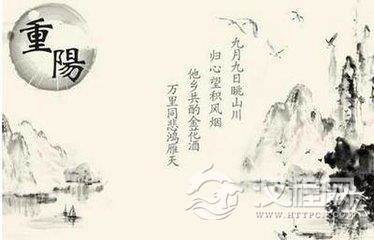 重陽
九月九日眺山川
归心望积风烟
他乡共酌金花酒
万里同悲鸿雁天
汉程网
WWW.HTTPCN.COM